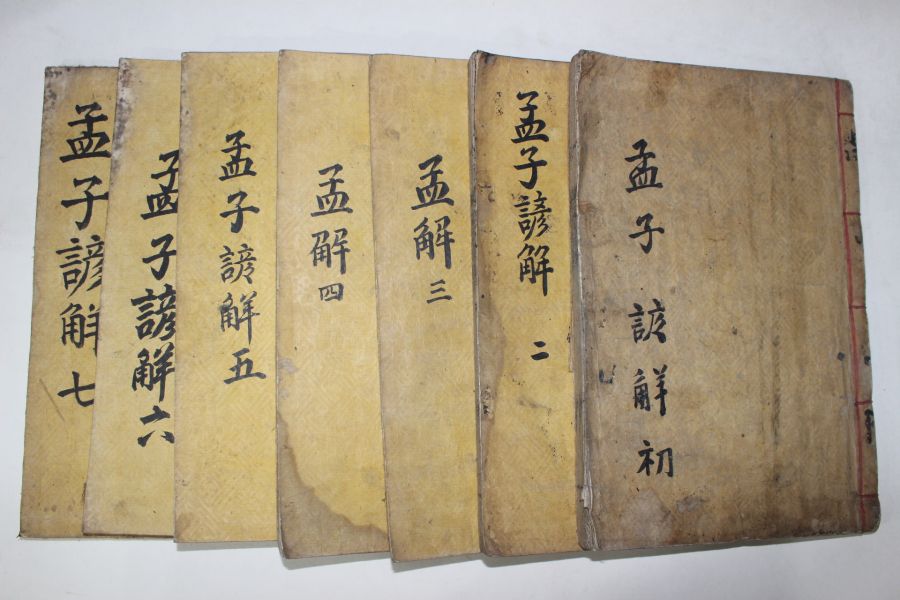 孟子諺解初
孟子諺解 二
孟解 三
孟解 四
孟子諺解五
孟子諺解六
孟子諺解 七